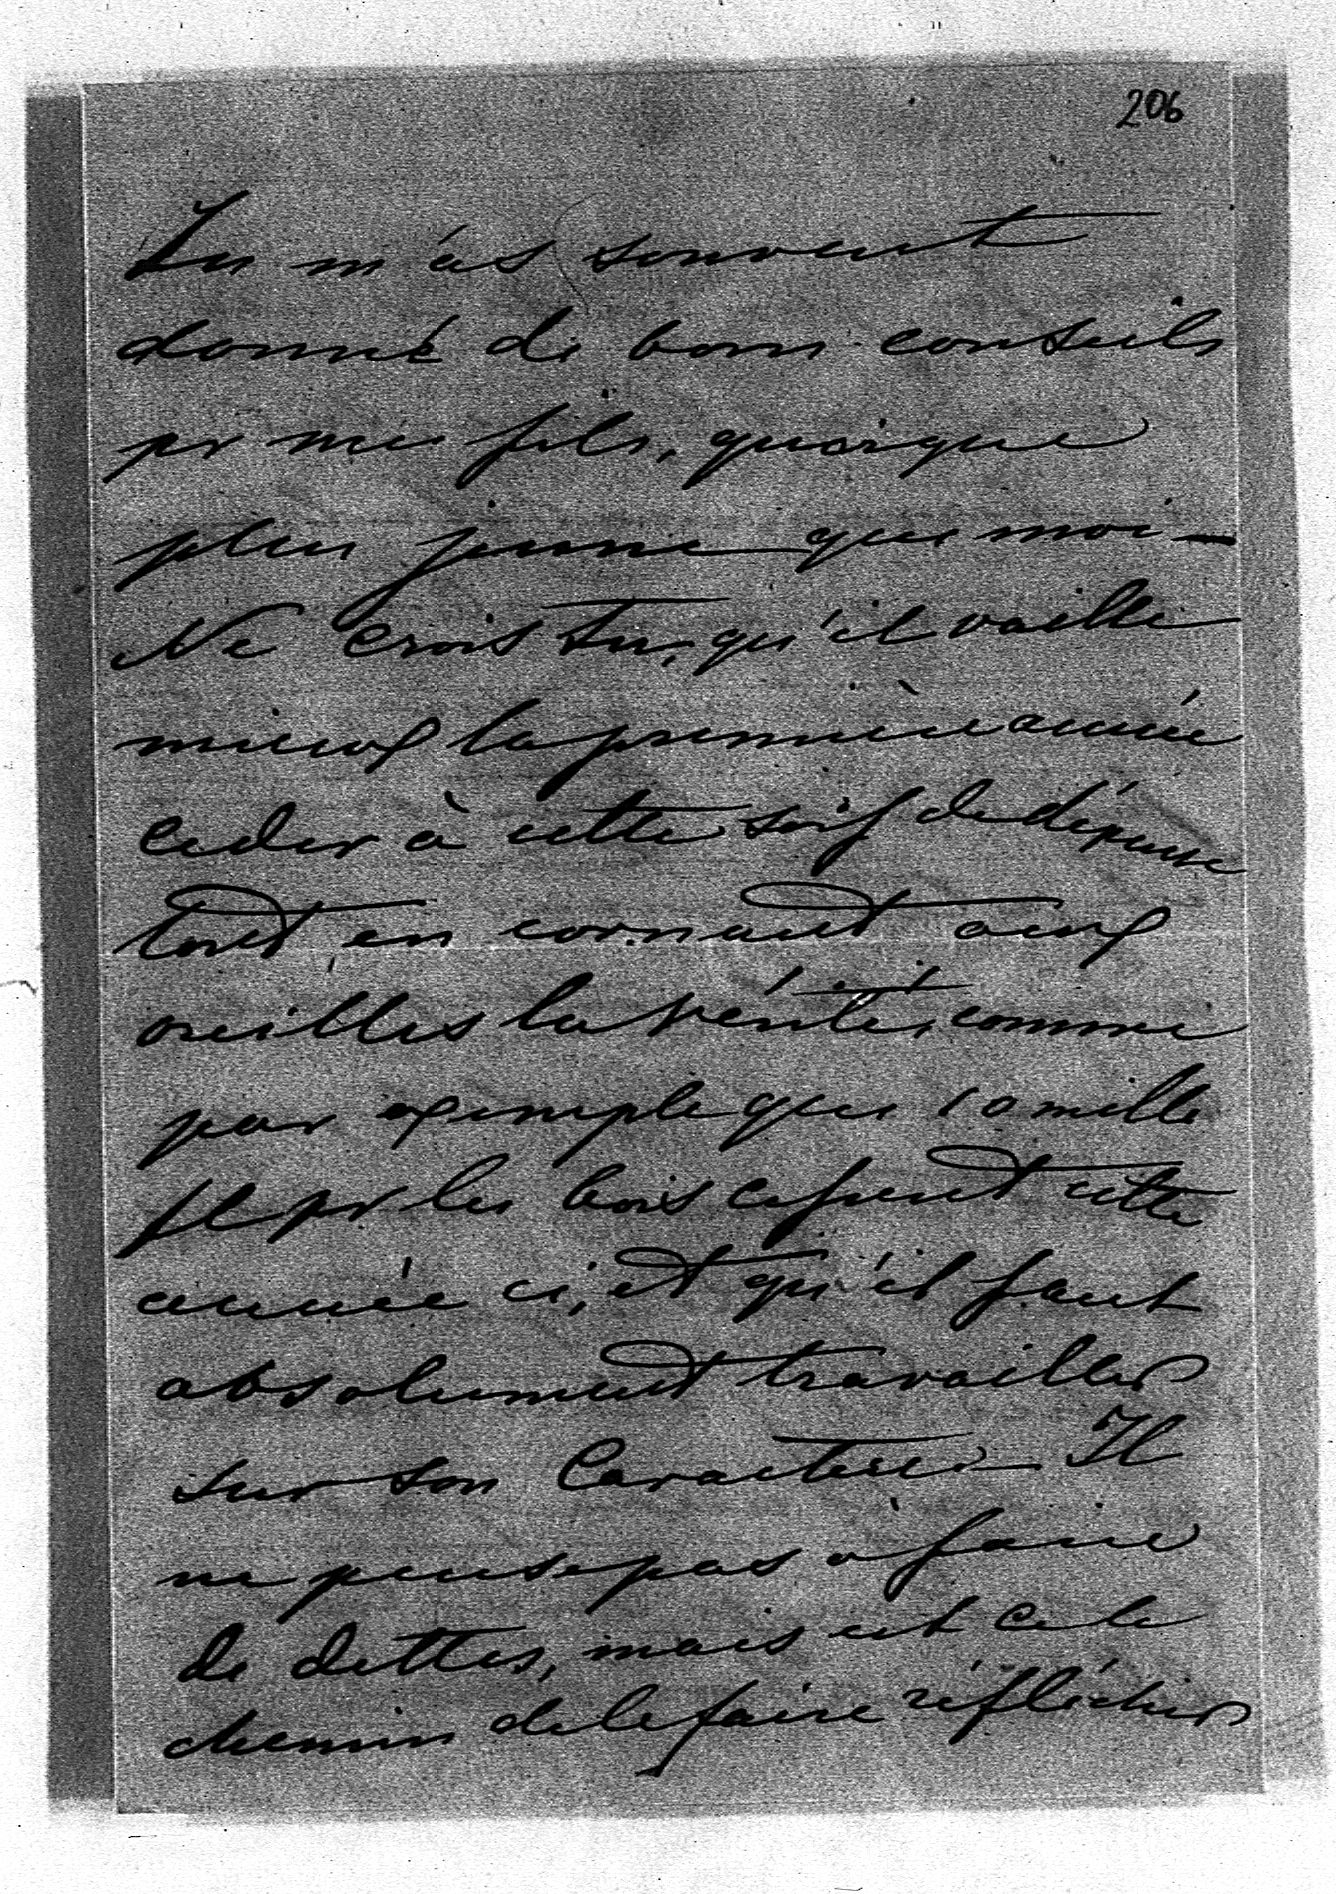 206
Tu m'as souvent
donné de bons conseils
pr mes fils, quoique
plus jeune que moi –
Ne crois tu, qu'il vaille
mieux la première année
ceder à cette soif de dépense
tout en cornant aux
oreilles la vérité, comme
par exemple que 10 mille
fl pr les bois cessent cette
année ci, et qu'il faut
absolument travailler
sur son Caractère – Il
ne pense pas à faire
de dettes, mais est ce le
chemin de le faire réfléchir